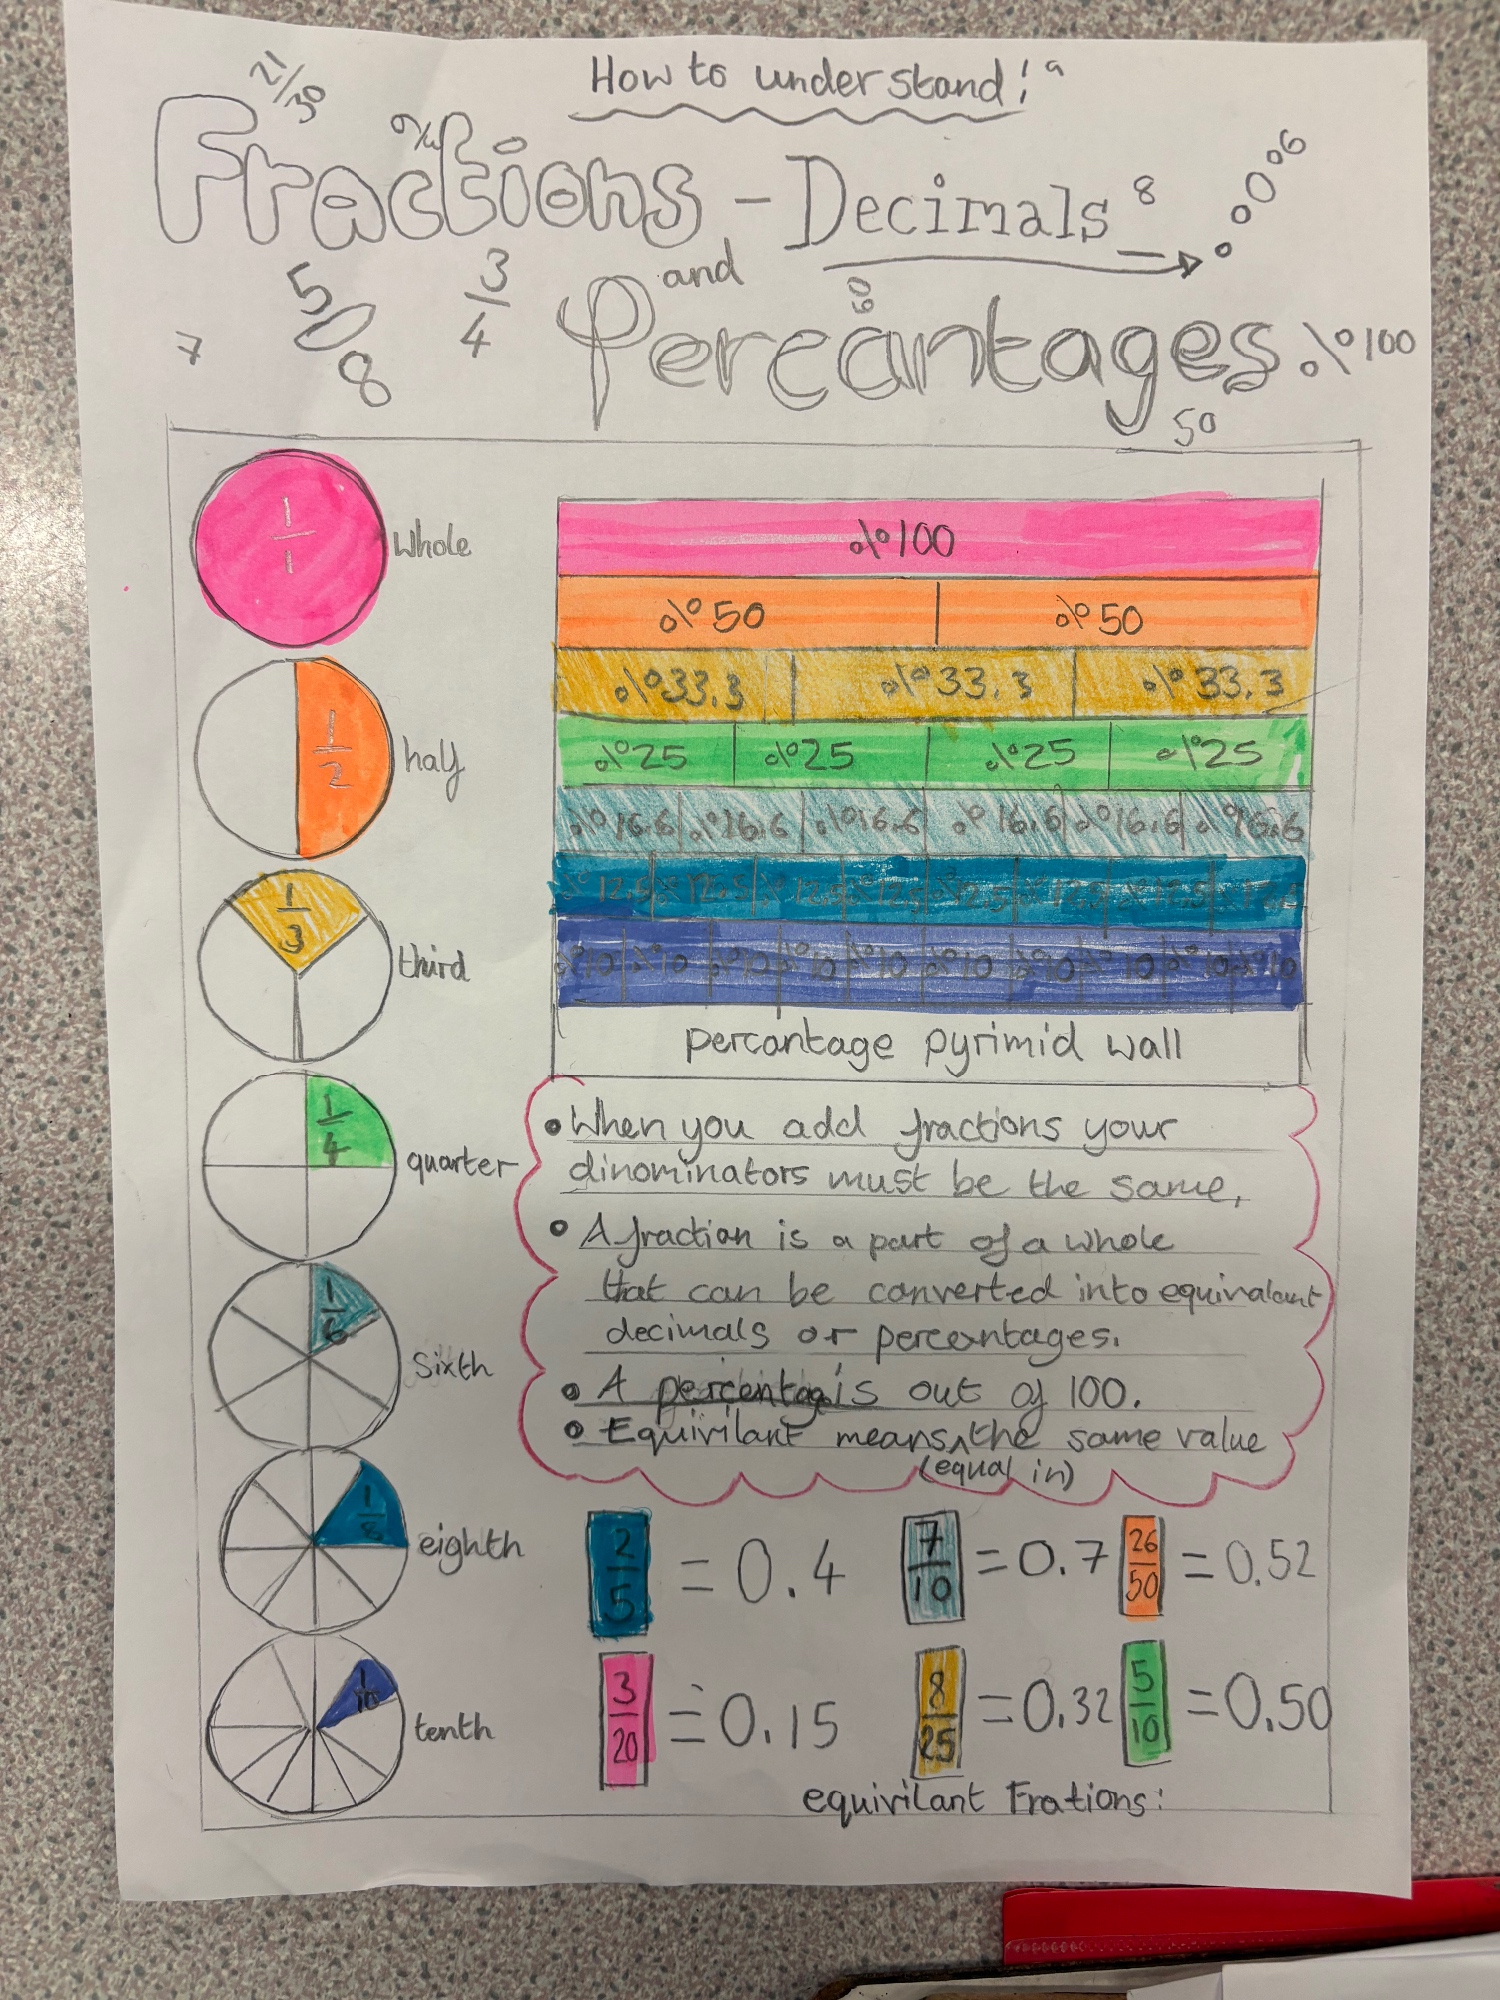 How to understand!
21/30
%
Fractions - Decimals
8
6
and
5/8
3/4
7
60
Percantages
%100
50
1/1 whole
1/2 half
1/3 third
1/4 quarter
1/6 sixth
1/8 eighth
1/10 tenth
%100
%50 %50
%33.3 %33.3 %33.3
%25 %25 %25 %25
%16.6 %16.6 %16.6 %16.6 %16.6 %16.6
%12.5 %12.5 %12.5 %12.5 %12.5 %12.5 %12.5 %12.5
%10 %10 %10 %10 %10 %10 %10 %10 %10 %10
percantage pyrimid wall
• When you add fractions your
dinominators must be the same,
• A fraction is a part of a whole
that can be converted into equivalant
decimals or percentages.
• A percentage is out of 100.
• Equivilant means ^ the same value
(equal in)
2/5 = 0.4 7/10 = 0.7 26/50 = 0.52
3/20 = 0.15 8/25 = 0.32 5/10 = 0.50
equivilant Frations: